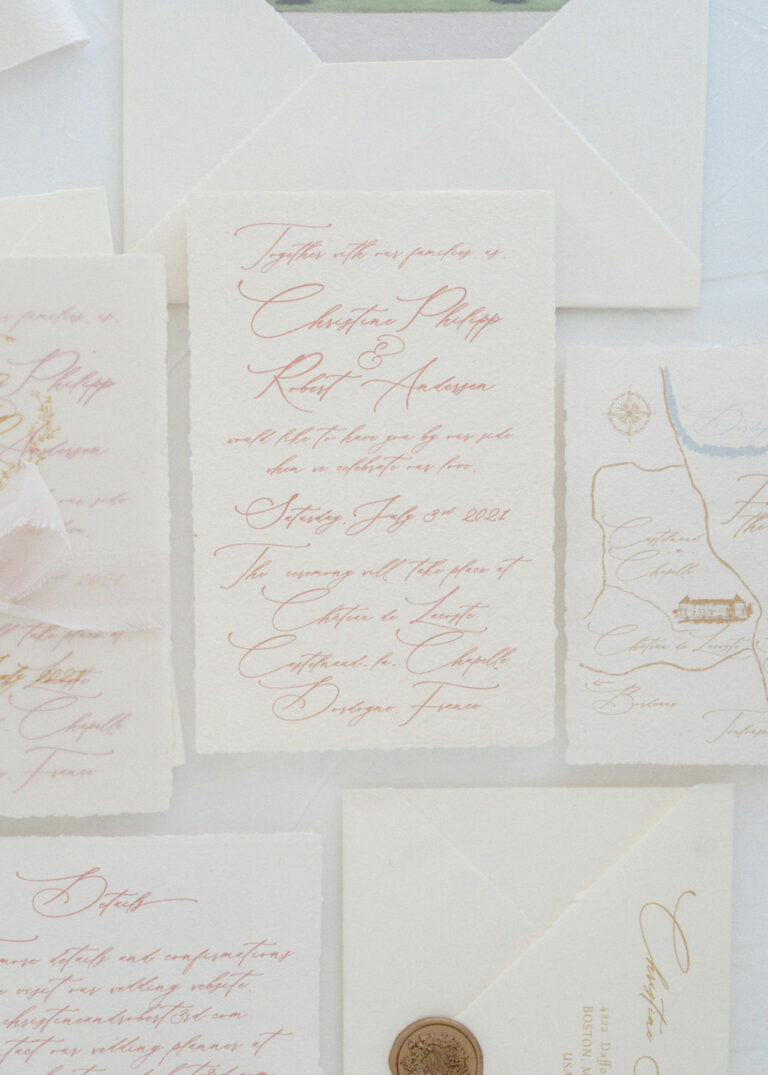 Together with our families, as,
Christine Philipp
&
Robert Andersen
would like to have you by our side
when we celebrate our love.
Saturday, July 3rd 2021
The ceremony will take place at
Château de Lacoste
Castelnaud, la, Chapelle
Dordogne, France
families, as,
Philipp
Andersen
our side
2021
take place at
July 2021
Chapelle
France
Castelnaud
la
Chapelle
Château de Lacoste
Bordeaux
Details
more details and confirmations
visit our wedding website
christineandrobert3rd.com
our wedding planner at
Christine
4222 Daffo
BOSTON, M
USA